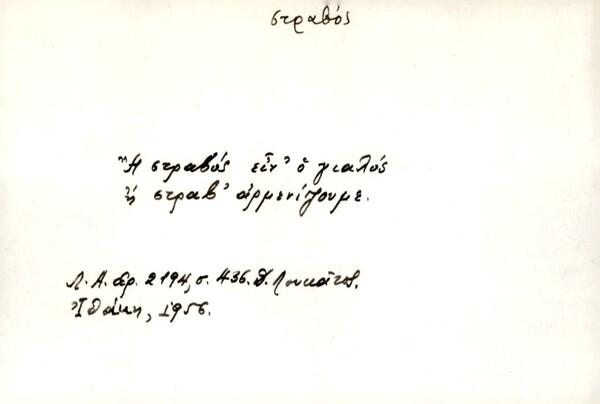 στραβός
Ἢ στραβός εἶν' ὁ γιαλός
ἢ στραβ' ἀρμενίζουμε.
Λ. Α. ἀρ. 2194, σ. 436. Δ. Λουκᾶτος,
Ἰθάκη, 1956.